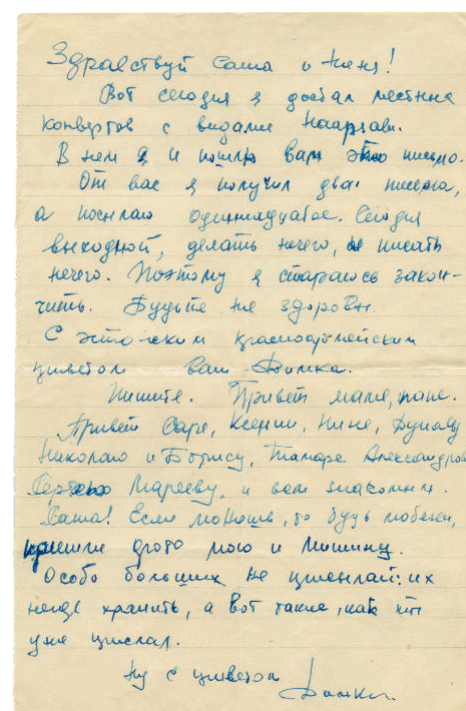 Здравствуй Саша и Женя!
Вот сегодня я достал местных
конвертов с видами
В нем я и пошлю вам это письмо.
От вас я получил два письма,
а посылаю одиннадцатое. Сегодня
выходной, делать нечего, и писать
нечего. Поэтому я стараюсь закон-
чить. Будьте же здоровы
С красноармейским
приветом ваш Димка.
Пишите. Привет маме, папе.
Привет Саре, Ксении, Нине,
Николаю и Борису, Тамаре
Сергею Марееву и всем знакомым.
Саша! Если можешь, то будь любезен,
пришли фото мою и Мишину.
Особо больших не присылай: их
негде хранить, а вот такие, как ты
уже прислал.
Ну с приветом
Димка.